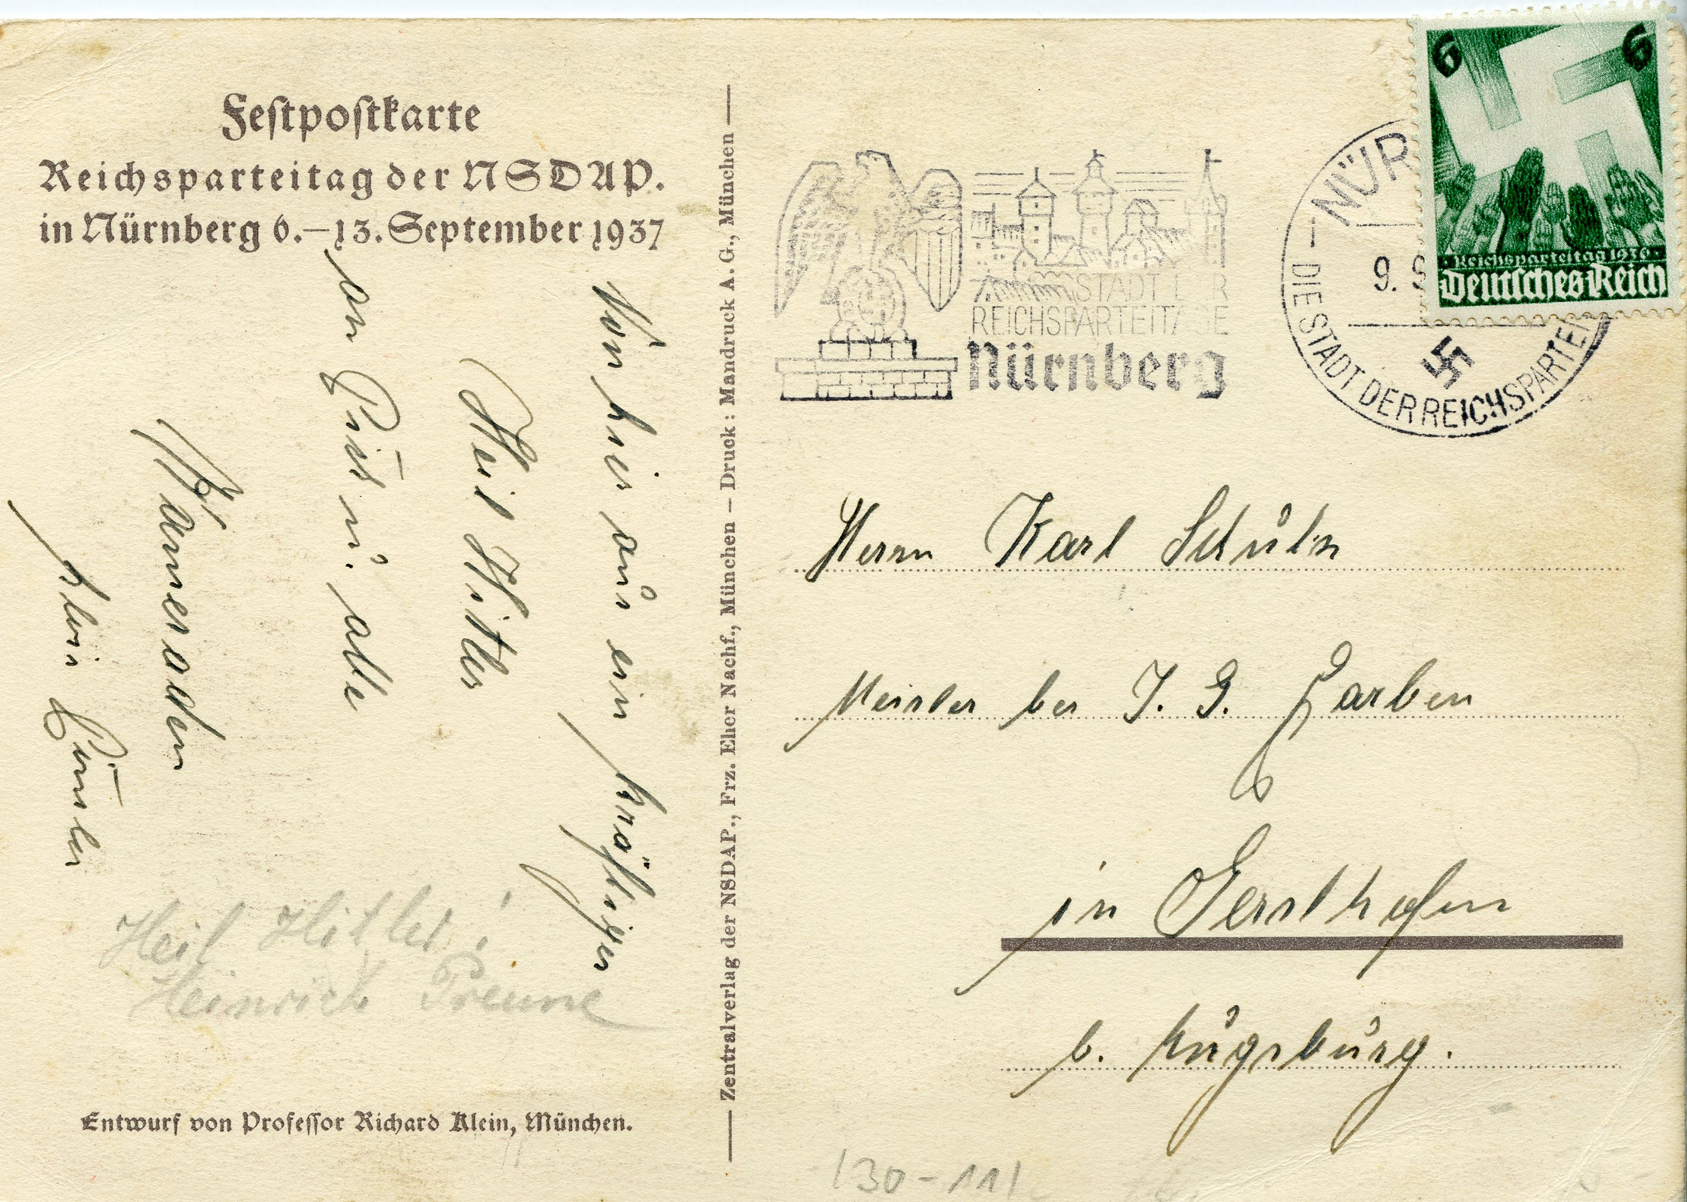 Festpostkarte
Reichsparteitag der NSDAP.
in Nürnberg 6.–13. September 1937
Von hier aus ein kräftiges
Heil Hitler
an u. alle
Kameraden
Heil Hitler!
Heinrich
Entwurf von Professor Richard Klein, München.
Zentralverlag der NSDAP., Frz. Eher Nachf., München – Druck: Mandruck A.G., München
STADT DER
REICHSPARTEITAGE
Nürnberg
NÜR
9. 9
DIE STADT DER REICHSPARTEI
6 6
Reichsparteitag 1936
Deutsches Reich
Herrn Karl Schulz
Meister bei I. G. Farben
in Gersthofen
b. Augsburg.
130-11